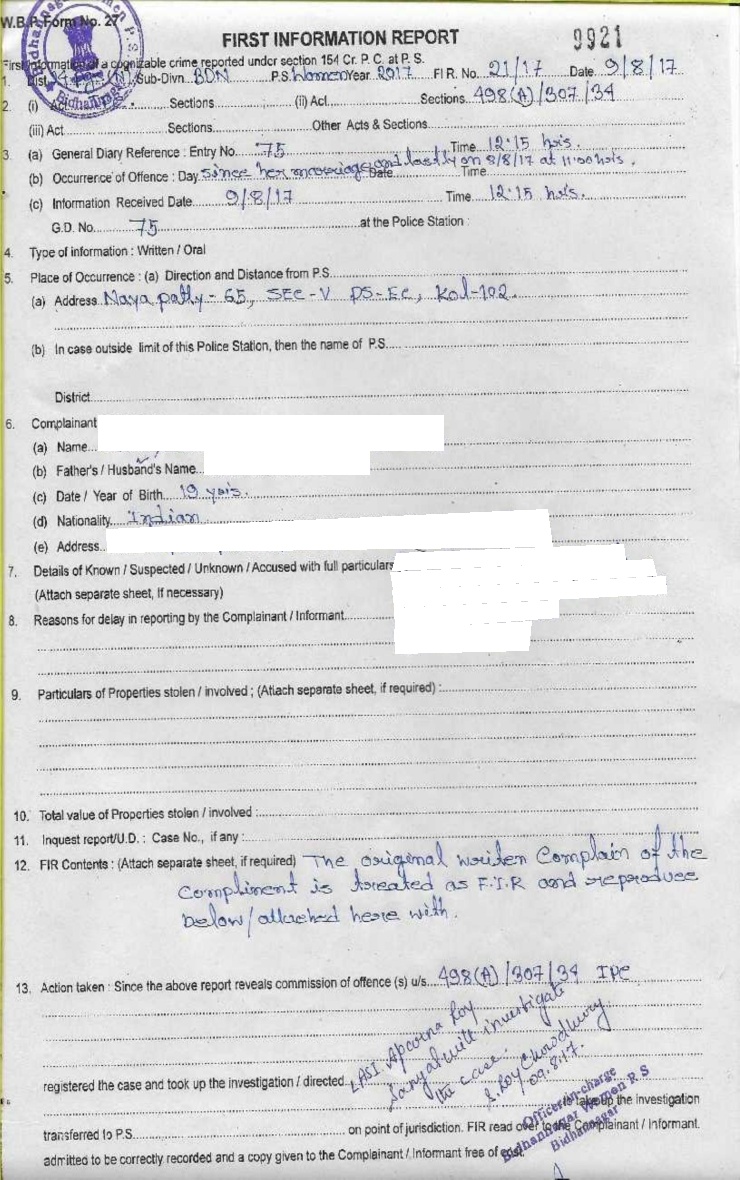 W.B.P. Form No. 27
FIRST INFORMATION REPORT
9921
First Information of a cognizable crime reported under section 154 Cr. P. C. at P. S.
1. Dist. Sub-Divn. BDN P.S. Women Year 2017 FIR. No. 21/17 Date 9/8/17
2. (i) Act Sections (ii) Act Sections 498(A)/307/34
(iii) Act Sections Other Acts & Sections
3. (a) General Diary Reference : Entry No. 75 Time 12·15 hrs.
(b) Occurrence of Offence : Day since her marriage and lastly on 8/8/17 at 11:00 hrs. Date Time
(c) Information Received Date 9/8/17 Time 12·15 hrs.
G.D. No. 75 at the Police Station :
4. Type of information : Written / Oral
5. Place of Occurrence : (a) Direction and Distance from P.S.
(a) Address Naya patty - 65, SEC-V PS-EC, Kol-102.
(b) In case outside limit of this Police Station, then the name of P.S.
District
6. Complainant
(a) Name
(b) Father's / Husband's Name
(c) Date / Year of Birth 19 yrs.
(d) Nationality Indian
(e) Address
7. Details of Known / Suspected / Unknown / Accused with full particulars
(Attach separate sheet, If necessary)
8. Reasons for delay in reporting by the Complainant / Informant
9. Particulars of Properties stolen / involved ; (Attach separate sheet, if required) :
10. Total value of Properties stolen / involved :
11. Inquest report/U.D. : Case No., if any :
12. FIR Contents : (Attach separate sheet, if required) The original writen Complain of the
Compliment is treated as F.I.R and reproduce
below/attached here with.
13. Action taken : Since the above report reveals commission of offence (s) u/s. 498(A)/307/34 IPC
LASI Aparna Roy
Sanyal will investigate
the case.
S. Roy Chowdhury
09.8.17.
registered the case and took up the investigation / directed
Officer-in-charge
to take up the investigation
Bidhannagar Women P.S
Bidhannagar
transferred to P.S. on point of jurisdiction. FIR read over to the Complainant / Informant.
admitted to be correctly recorded and a copy given to the Complainant / Informant free of cost.